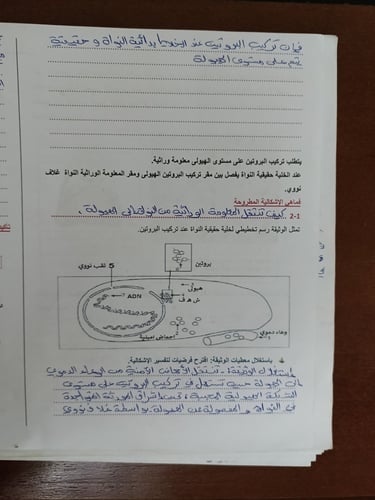 فإن تركيب البروتين عند الخلايا بدائية النواة و حقيقية
يتم على مستوى الهيولة
يتطلب تركيب البروتين على مستوى الهيولى معلومة وراثية.
عند الخلية حقيقية النواة يفصل بين مقر تركيب البروتين الهيولى ومقر المعلومة الوراثية النواة غلاف
نووي.
فماهي الاشكالية المطروحة
2-1 كيف تنتقل المعلومة الوراثية من النواة إلى الهيولة
تمثل الوثيقة رسم تخطيطي لخلية حقيقية النواة عند تركيب البروتين.
بروتين
5 ثقب نووي
هيولى
ش ه ف
ADN
وعاء دموي
احماض امينية
باستغلال معطيات الوثيقة: اقترح فرضيات لتفسير الاشكالية.
باستغلال الوثيقة: تنتقل الأحماض الأمينية من الوعاء الدموي
إلى الهيولة حيث تستعمل في تركيب البروتين على مستوى
الشبكة الهيولية المحببة، تحت إشراف المورثة المتواجدة
في النواة و المفصولة عن الهيولة بواسطة غلاف نووي